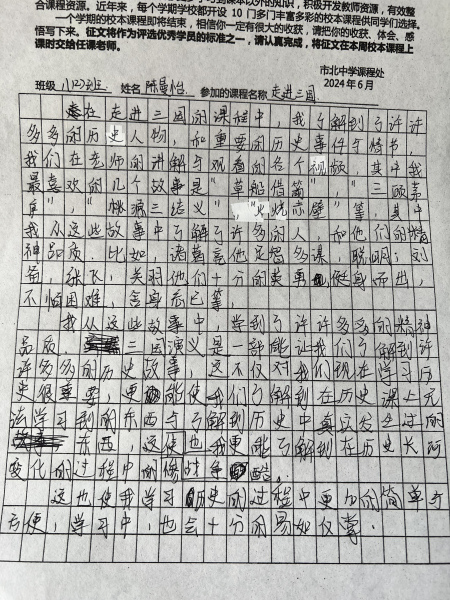 合课程资源。近年来,每个学期学校都开设 10 门多丰富多彩的校本课程供同学们选择。
一个学期的校本课程即将结束,相信你一定有很大的收获,请把你的收获、体会、感
悟写下来。征文将作为评选优秀学员的标准之一,请认真完成,将征文在本周校本课程上
课时交给任课老师。
市北中学课程处
2024年6月
班级 姓名 陈曼怡 参加的课程名称 走进三国
在走进三国的课程中,我了解到了许许
多多的历史人物,和重要的历史事件与情节,
我们在老师的讲解与观看的各个视频,其中我
最喜欢的几个故事是“草船借箭”,“三顾茅
庐”,“桃源三结义”,“火烧赤壁”等,其中
我从这些故事中了解了许多的人,和他们的精
神品质,比如,诸葛亮他足智多谋,聪明;刘
备,张飞,关羽他们十分的英勇,挺身而出,
不惧困难,舍身忘己等,
我从这些故事中,学到了许许多多的精神
品质,三国演义是一部能让我们了解到许
许多多的历史故事,这不仅对我们现在学习历
史很重要,更能使我们了解到在历史课上无
法学习到的东西与了解到历史中真实发生过的
东西,这使也我更能了解到在历史长河
变化的过程中的惨战争酷。
这也使我学习历史的过程中更加的简单与
方便,学习中,也会十分的易如仅掌.